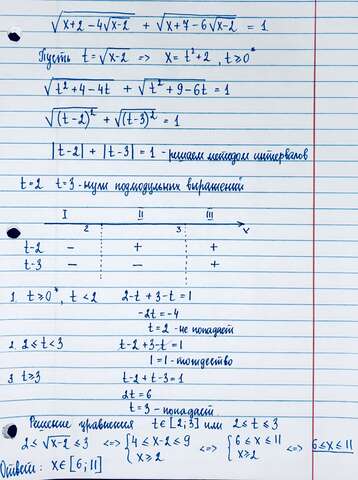 √(x+2-4√(x-2)) + √(x+7-6√(x-2)) = 1
Пусть t=√(x-2) => x=t²+2, t≥0*
√(t²+4-4t) + √(t²+9-6t) = 1
√((t-2)²) + √((t-3)²) = 1
|t-2| + |t-3| = 1 - решаем методом интервалов
t=2 t=3 - нули подмодульных выражений
I II III
2 3 x
t-2 - + +
t-3 - - +
1. t≥0*, t<2 2-t+3-t=1
-2t=-4
t=2 - не попадает
2. 2≤t<3 t-2+3-t=1
1=1 - тождество
3. t≥3 t-2+t-3=1
2t=6
t=3 - попадает
Решение уравнения t∈[2;3] или 2≤t≤3
2≤√(x-2)≤3 <=> {4≤x-2≤9 x≥2 <=> {6≤x≤11 x≥2 <=> 6≤x≤11
Ответ: x∈[6;11]